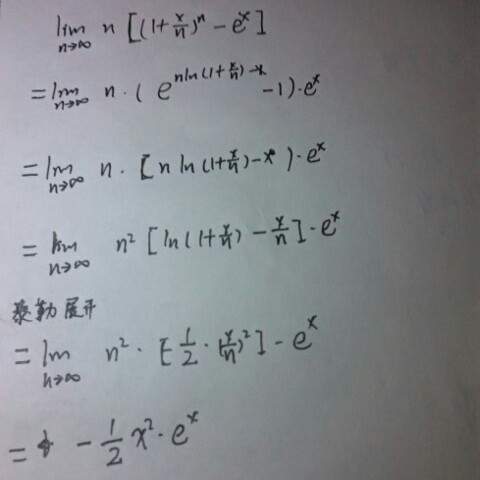 lim n→∞ n [(1+x/n)^n − e^x]
= lim n→∞ n · ( e^(n ln(1+x/n) − x) − 1) · e^x
= lim n→∞ n · [n ln(1+x/n) − x ) · e^x
= lim n→∞ n² [ln(1+x/n) − x/n] · e^x
泰勒展开
= lim n→∞ n² · [1/2 · (x/n)²] − e^x
= − 1/2 x² · e^x